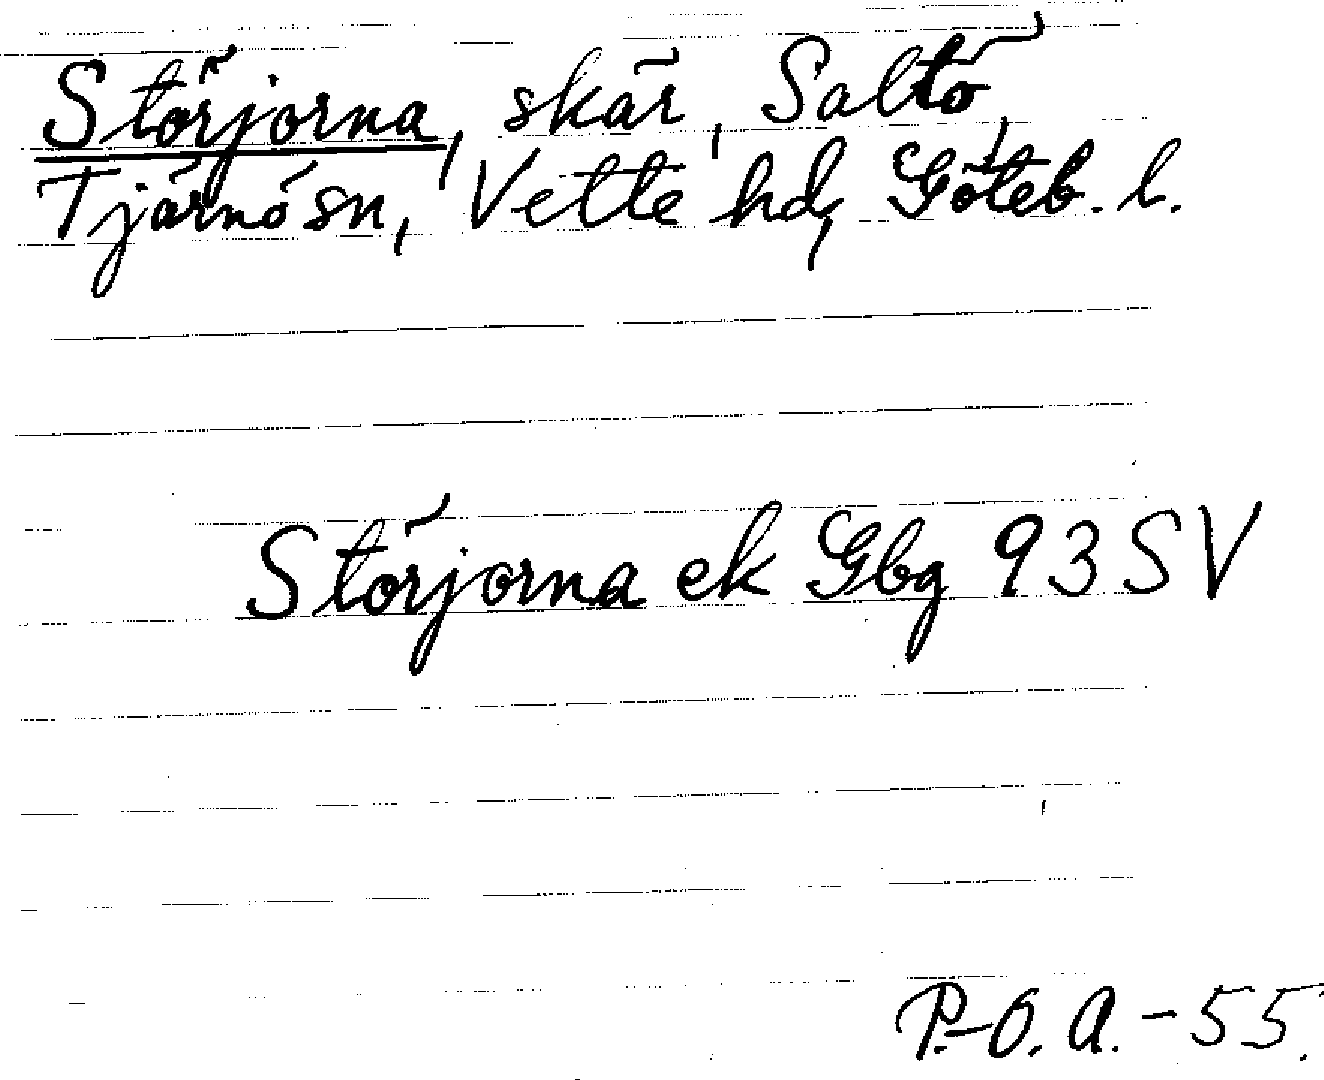 Störjorna, skär, Saltö,
Tjärnö sn, Vette hd, Göteb. l.
Störjorna ek Gbg 93 SV
P.-O. A. - 55.